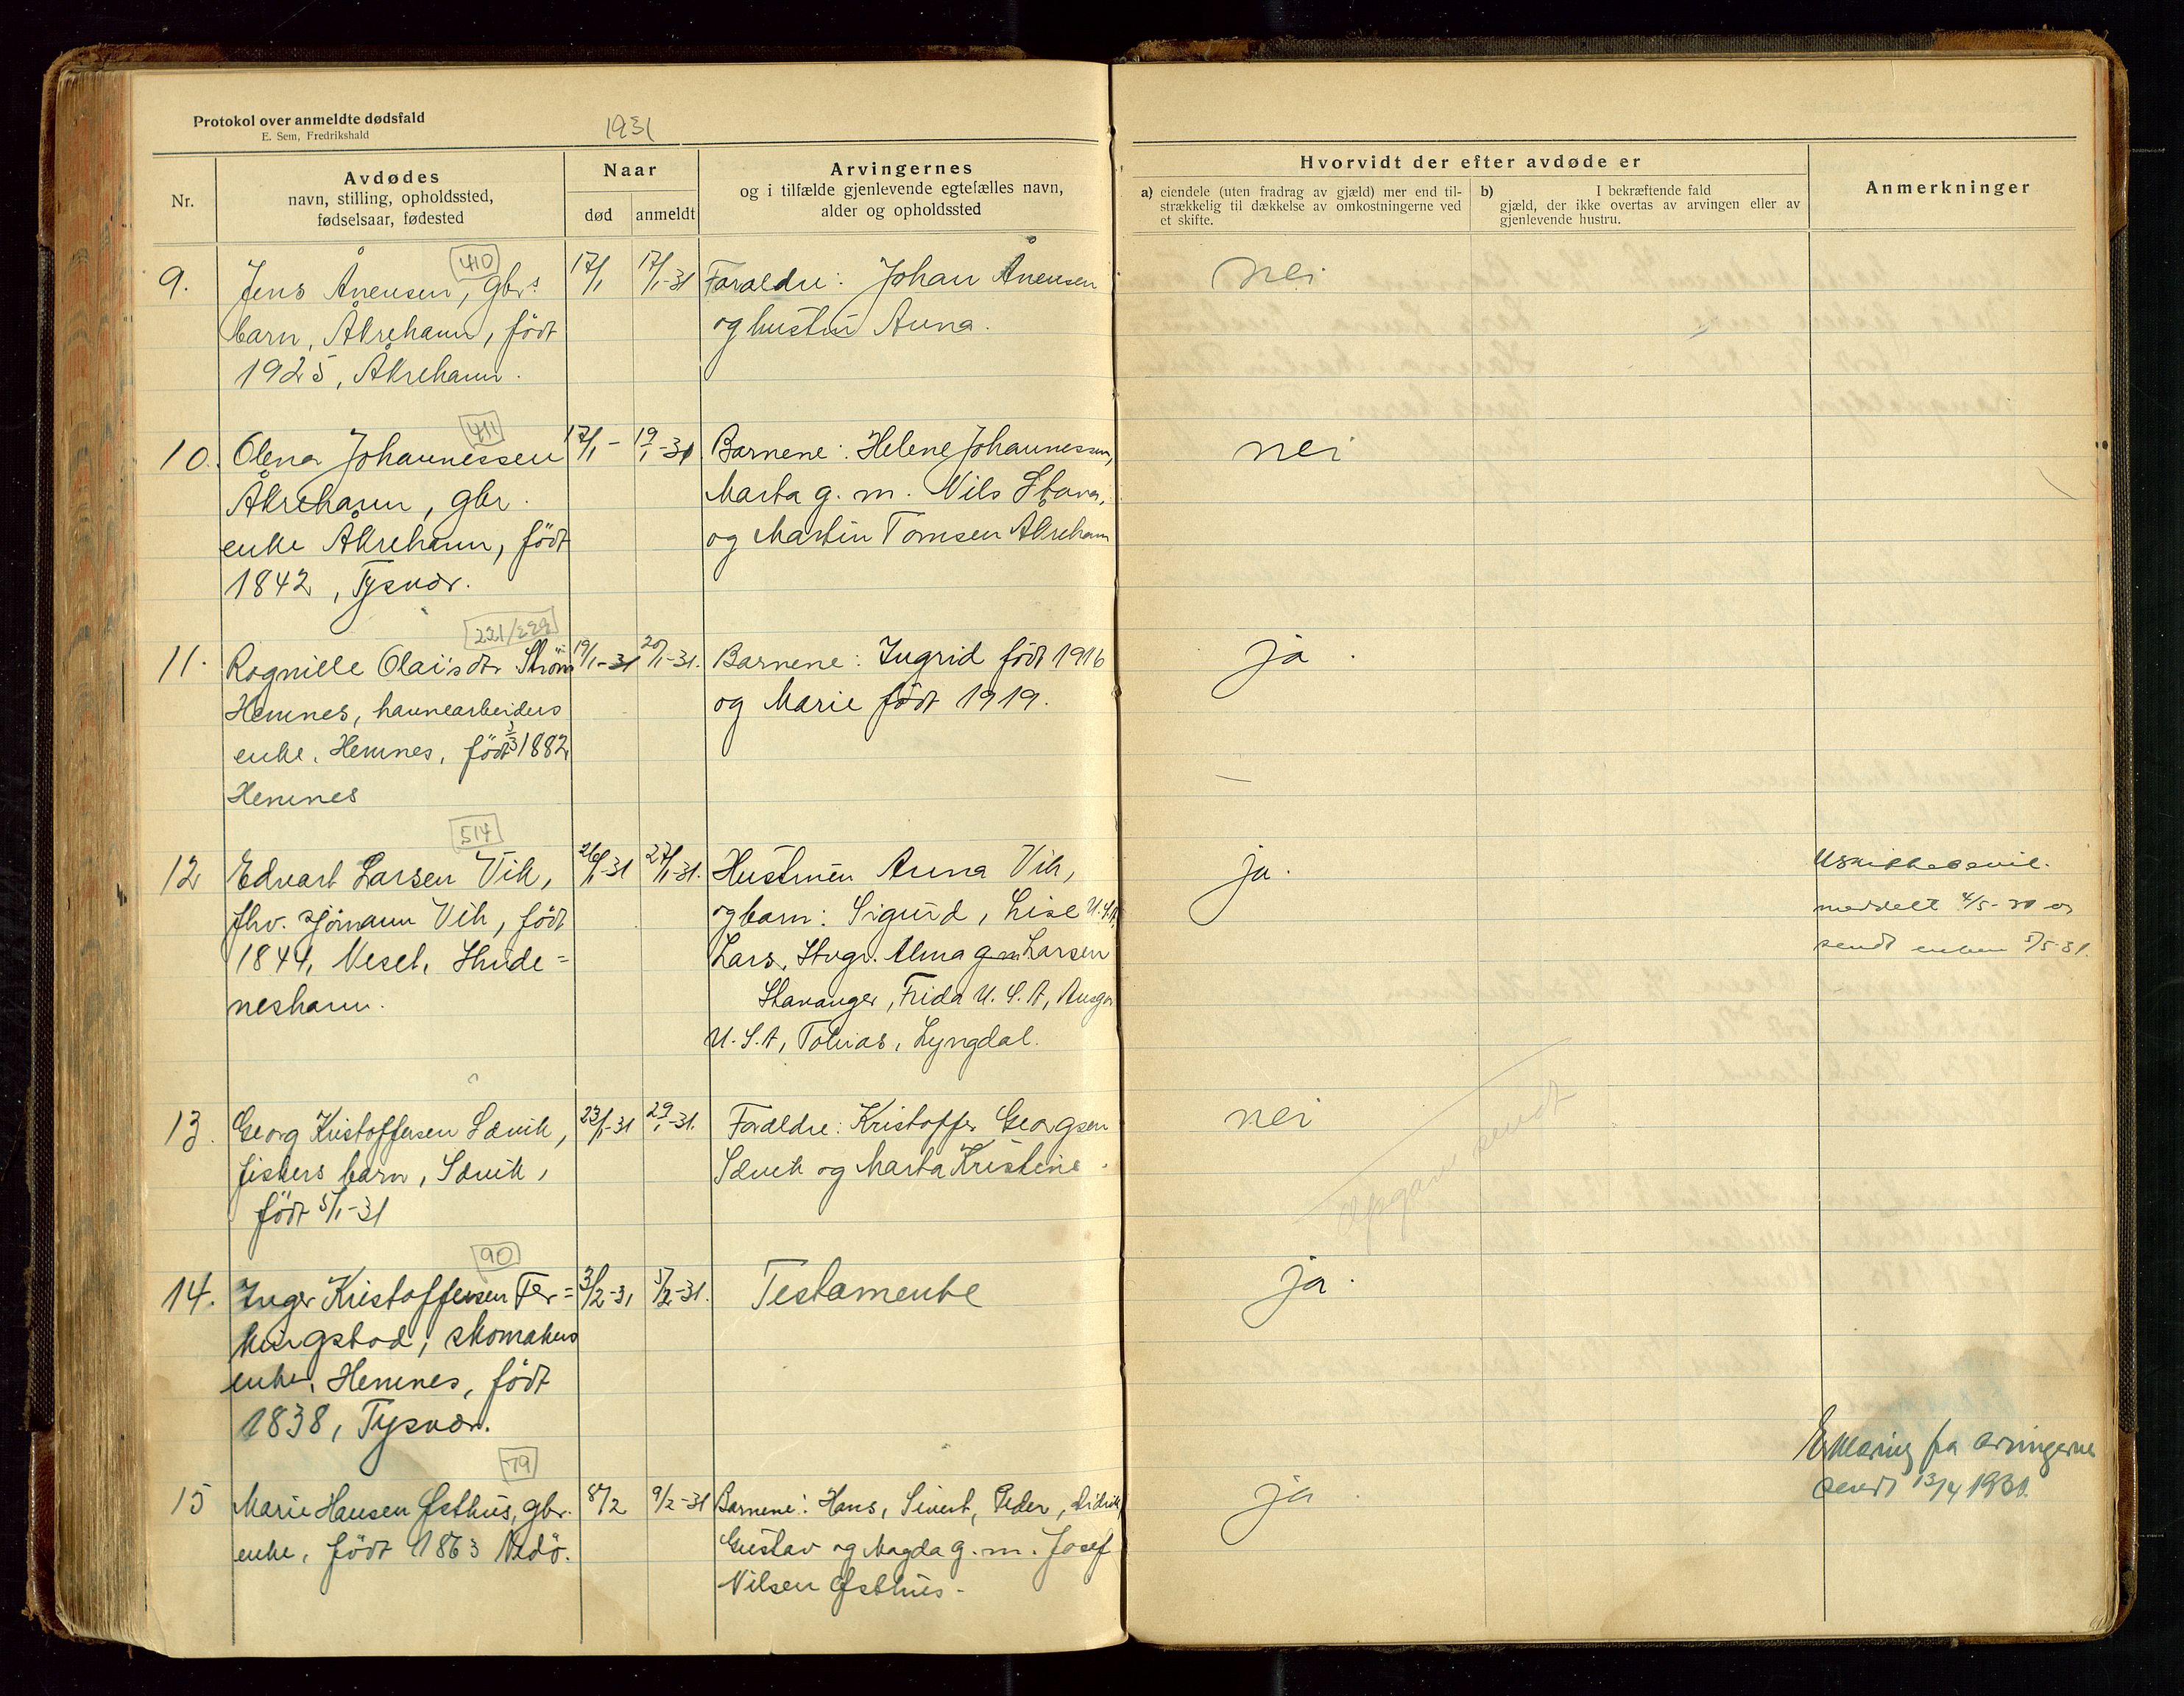 Protokol over anmeldte dødsfald
E. Sem, Fredrikshald
1931
Nr.
Avdødes
navn, stilling, opholdssted,
fødselsaar, fødested
Naar
død
anmeldt
Arvingernes
og i tilfælde gjenlevende egtefælles navn,
alder og opholdssted
Hvorvidt der efter avdøde er
a) eiendele (uten fradrag av gjæld) mer end til-
strækkelig til dækkelse av omkostningerne ved
et skifte.
b) I bekræftende fald
gjæld, der ikke overtas av arvingen eller av
gjenlevende hustru.
Anmerkninger
410
9. Jens Ånensen, gbrs 17/1 17/1-31 Foraldre: Johan Ånensen nei
barn, Åkrehamn, født og hustru Anna.
1925, Åkrehamn.
411
10. Olena Johannessen 17/1- 19/1-31 Barnene: Helene Johannessen, nei
Åkrehamn, gbr. Marta g. m. Nils Stava,
enke Åkrehamn, født og Martin Tomsen Åkrehamn
1842, Tysvær.
221/222
11. Rognille Olaisdtr Strøm 19/1-31 20/1-31. Barnene: Ingrid født 1916 ja.
Hemnes, havnearbeiders og Marie født 1919.
enke, Hemnes, født 1882
Hemnes
514
12 Edvart Larsen Vik, 26/1-31 27/1-31. Hustruen Anna Vik, ja. Uskiftebevil.
fhv. sjømann Vik, født og barn: Sigurd, Lise U.S.A, meddelt 4/5-30 og
1844, Nesel, Skude= Lars, Stvgr. Alma g m Larsen sendt enken 5/5-31.
neshavn. Stavanger, Frida U.S.A, Ansgar
U.S.A, Tobias, Lyngdal.
13. Georg Kristoffersen Sævik, 23/1-31 29/1-31. Foraldre: Kristoffer Georgsen nei
fiskers barn, Sævik, Sævik og Marta Kristine.
født 5/1-31
Opgave sendt
90
14. Inger Kristoffersen Fer= 3/2-31 5/2-31. Testamente ja.
kingstad, skomakers
enke, Hemnes, født
1838, Tysvær.
79
Erklæring fra arvingerne
sendt 13/4 1931.
15 Marie Hansen Østhus, gbr. 8/2 9/2-31 Barnene: Hans, Sivert, Peder, Didrik, ja.
enke, født 1863 Vedø. Gustav og Magda g. m. Josef
Nilsen Østhus-